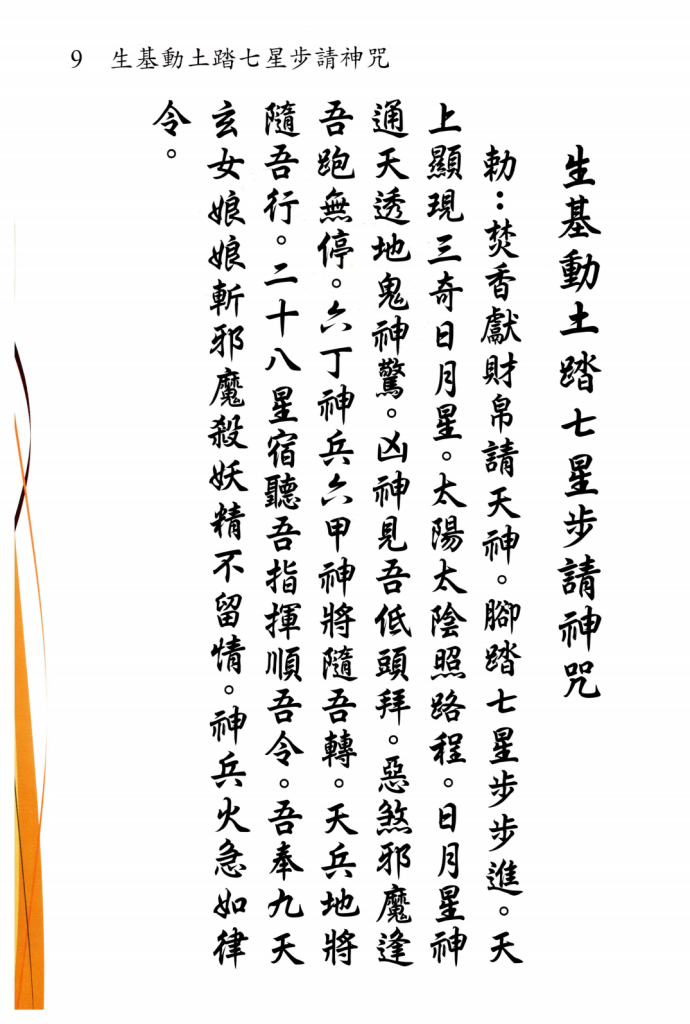 9 生基動土踏七星步請神咒
生基動土踏七星步請神咒
勅：焚香獻財帛請天神。腳踏七星步步進。天
上顯現三奇日月星。太陽太陰照路程。日月星神
通天透地鬼神驚。凶神見吾低頭拜。惡煞邪魔逢
吾跑無停。六丁神兵六甲神將隨吾轉。天兵地將
隨吾行。二十八星宿聽吾指揮順吾令。吾奉九天
玄女娘娘斬邪魔殺妖精不留情。神兵火急如律
令。